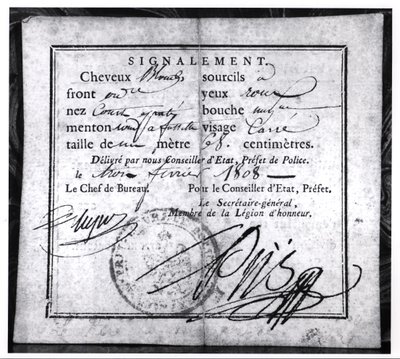 SIGNALEMENT.
Cheveux Blonds sourcils
front yeux roux
nez Court bouche
menton à fossette visage Carré
taille de un mètre 68. centimètres.
Délivré par nous Conseiller d'Etat, Préfet de Police.
le trois février 1808
Le Chef de Bureau. Pour le Conseiller d'Etat, Préfet.
Le Secrétaire-général,
Membre de la Légion d'honneur.
Piis